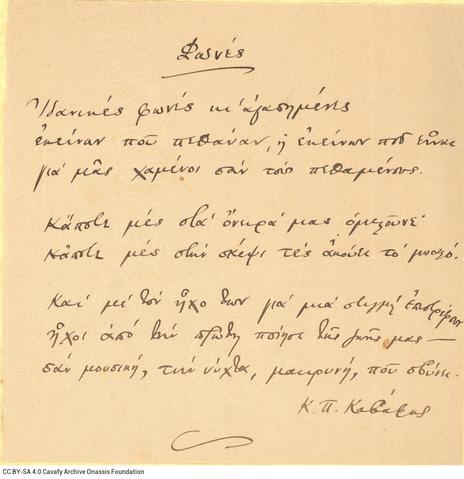 Φωνές
Ἰδανικές φωνές κι' ἀγαπημένες
ἐκείνων πού πέθαναν, ἤ ἐκείνων πού εἶναι
γιά μᾶς χαμένοι σάν τούς πεθαμένους.
Κάποτε μές στά ὄνειρά μας ὁμιλοῦνε·
κάποτε μές στήν σκέψι τές ἀκούει τό μυαλό.
Καί μέ τόν ἦχο των γιά μιά στιγμή ἐπιστρέφουν
ἦχοι ἀπό τήν πρώτη ποίησι τῆς ζωῆς μας —
σάν μουσική, τήν νύχτα, μακρυνή, πού σβύνει.
Κ. Π. Καβάφης
CC BY-SA 4.0 Cavafy Archive Onassis Foundation